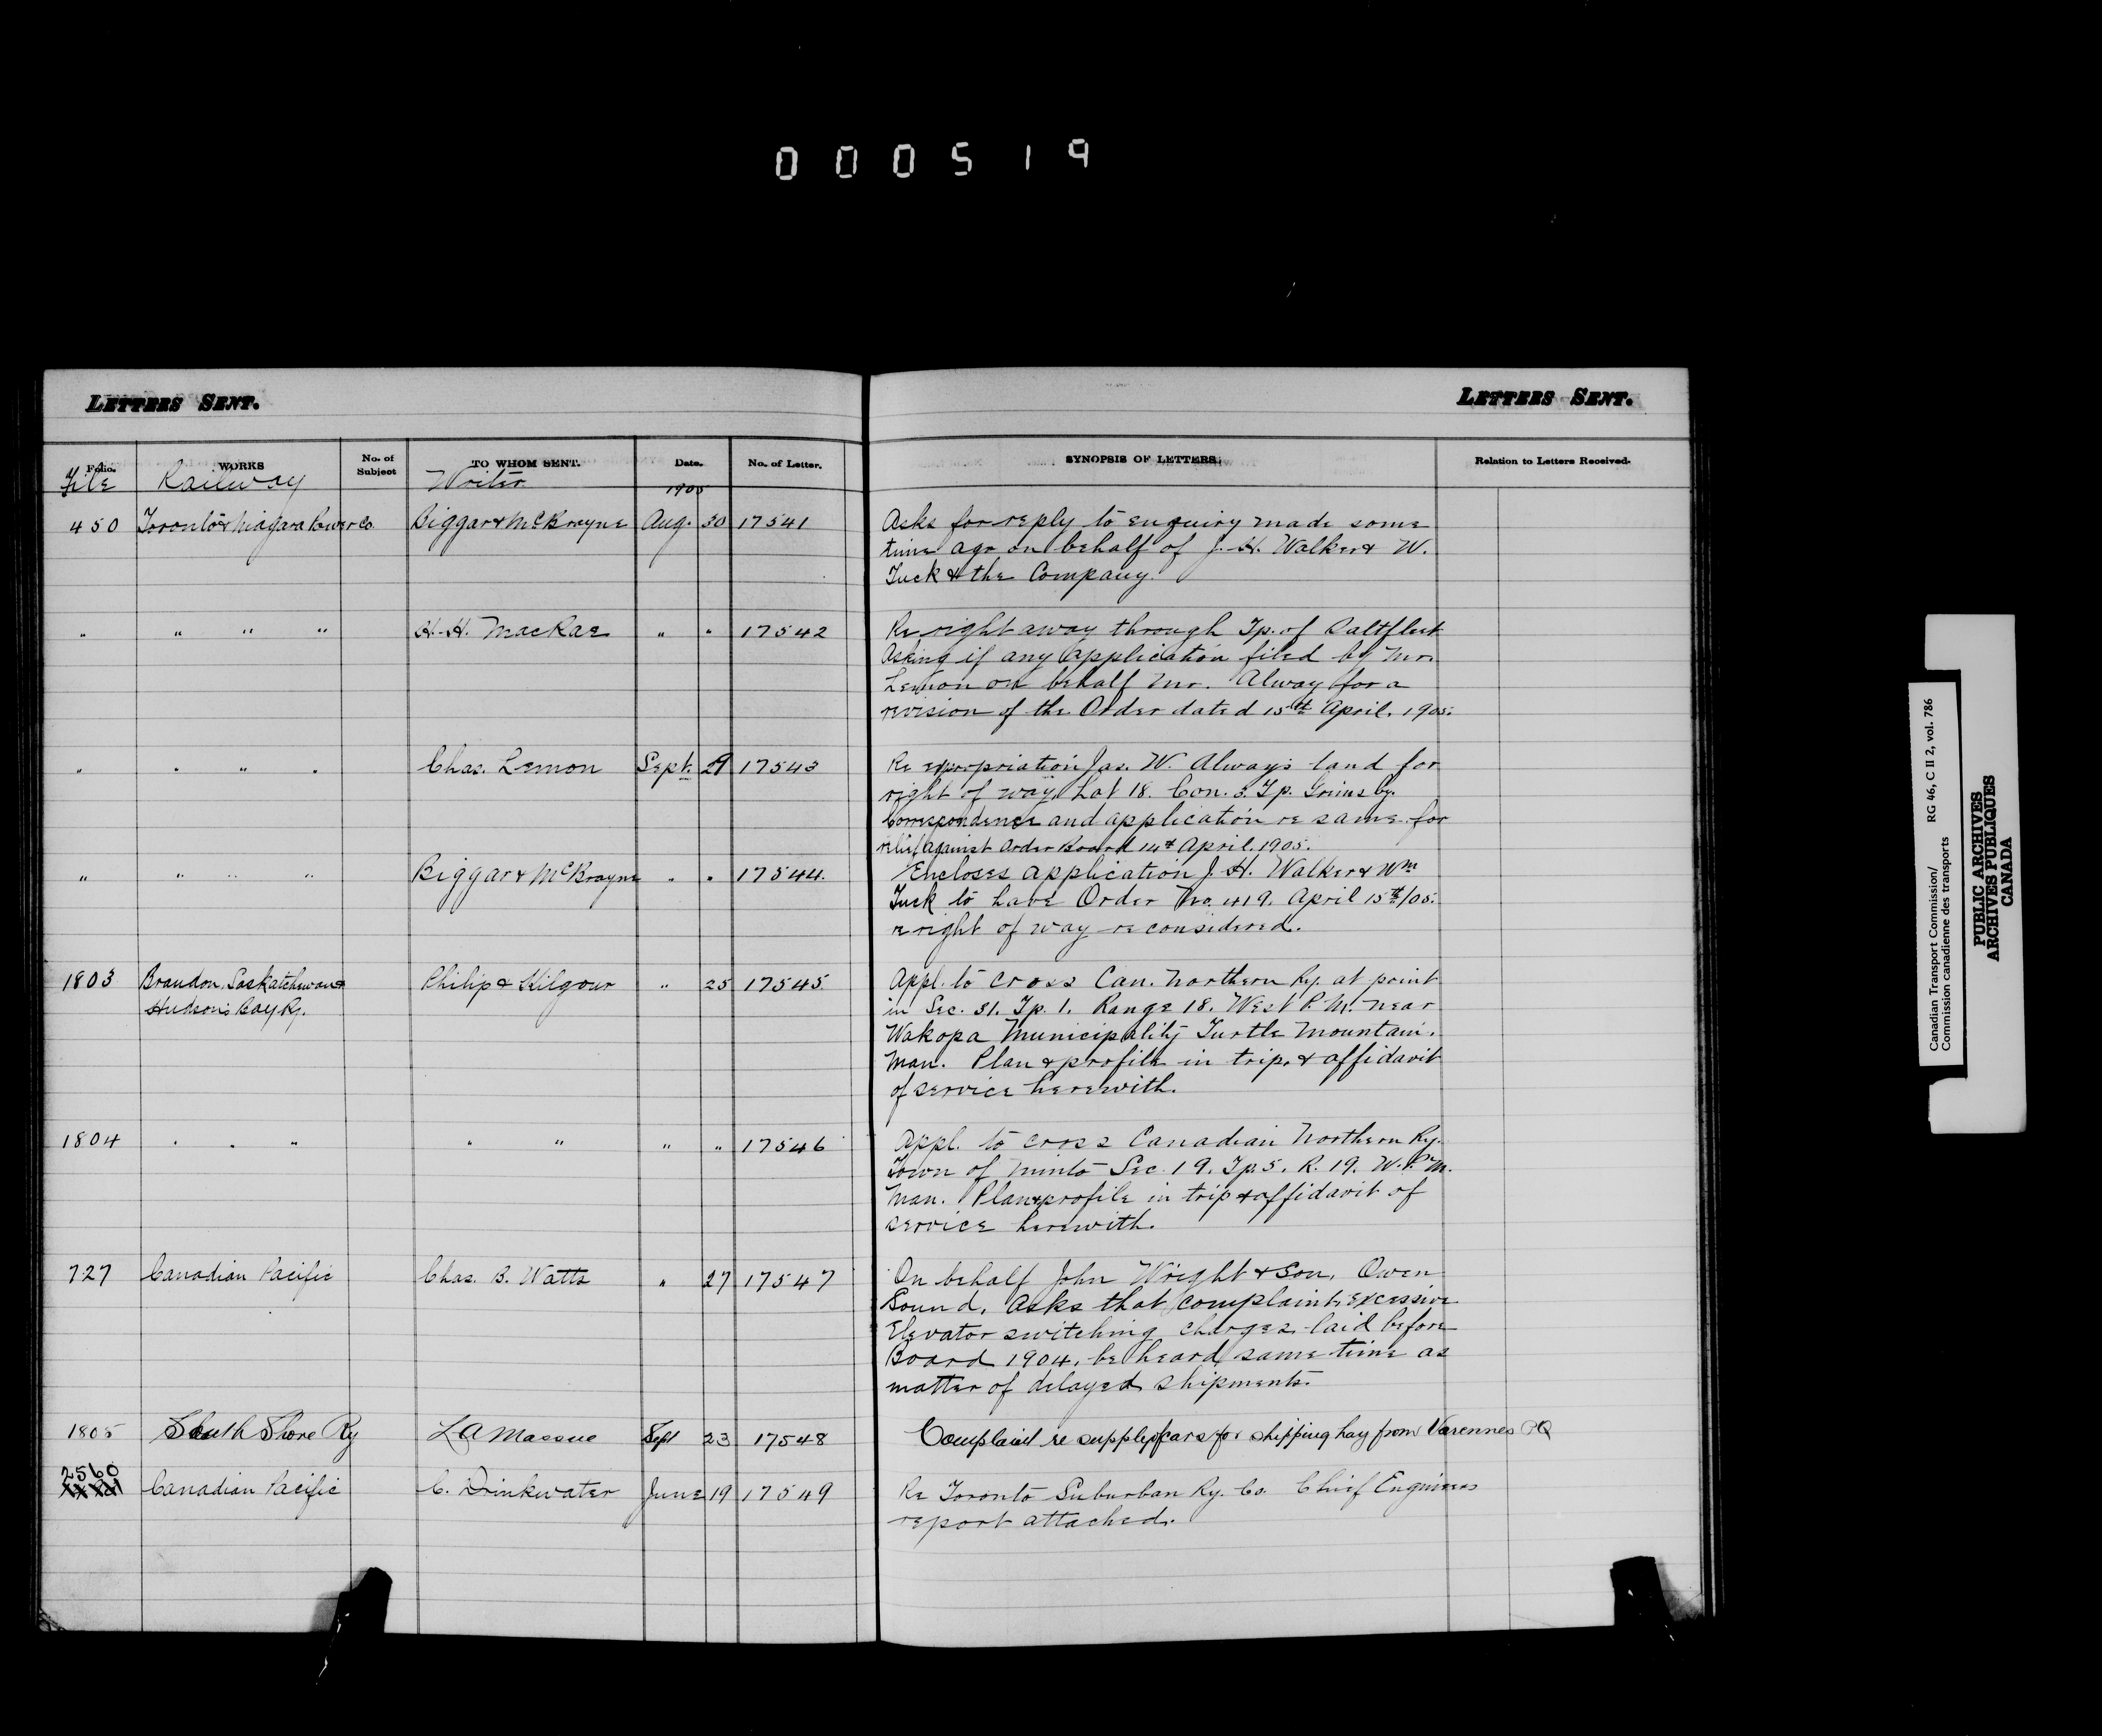 000519
LETTERS SENT.
LETTERS SENT.
Folio. WORKS No. of Subject TO WHOM SENT. Date. No. of Letter. SYNOPSIS OF LETTERS. Relation to Letters Received.
File Railway Writer 1905
450 Toronto & Niagara Power Co. Biggar & McBrayne Aug. 30 17541 Asks for reply to enquiry made some
time ago on behalf of J. H. Walker & W.
Tuck & the Company.
" " " " H. H. MacRae " " 17542 Re right away through Tp. of Saltfleet
Asking if any application filed by Mr.
Lemon on behalf Mr. Alway for a
revision of the Order dated 15th April. 1905.
" " " " Chas. Lemon Sept. 29 17543 Re expropriation Jas. W. Alway's land for
right of way, Lot 18. Con. 3. Tp. Grimsby.
Correspondence and application re same for
relief against Order Board 14th April. 1905.
" " " " Biggar & McBrayne " " 17544. Encloses application J. H. Walker & Wm
Tuck to have Order No. 419. April 15th/05.
re right of way reconsidered.
1803 Brandon, Saskatchewan & Philip & Kilgour " 25 17545 Appl. to cross Can. Northern Ry. at point
Hudson's Bay Ry. in Sec. 31. Tp. 1. Range 18. West P. M. near
Wakopa Municipality Turtle Mountain.
Man. Plan & profile in trip. & affidavit
of service herewith.
1804 " " " " " " " 17546 Appl. to cross Canadian Northern Ry.
Town of Minto Sec. 19. Tp. 5. R. 19. W. P. M.
Man. Plan & profile in trip & affidavit of
service herewith.
727 Canadian Pacific Chas. B. Watts " 27 17547 On behalf John Wright & Son, Owen
Sound, asks that complaint, excessive
Elevator switching charges laid before
Board 1904, be heard same time as
matter of delayed shipments.
1805 South Shore Ry L A Massue Sept 23 17548 Complaint re supply of cars for shipping hay from Varennes PQ
2560 Canadian Pacific C. Drinkwater June 19 17549 Re Toronto Suburban Ry. Co. Chief Engineers
report attached.
Canadian Transport Commission/ RG 46, C II 2, vol. 786
Commission canadienne des transports
PUBLIC ARCHIVES
ARCHIVES PUBLIQUES
CANADA